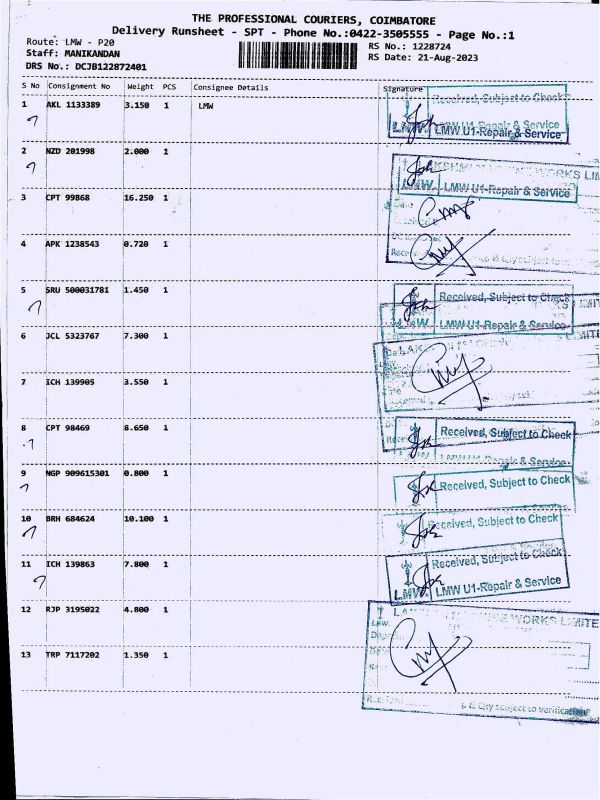 THE PROFESSIONAL COURIERS, COIMBATORE
Delivery Runsheet - SPT - Phone No.:0422-3505555 - Page No.:1
Route: LMW - P20
RS No.: 1228724
Staff: MANIKANDAN
RS Date: 21-Aug-2023
DRS No.: DCJB122872401
S No Consignment No Weight PCS Consignee Details Signature
1 AKL 1133389 3.150 1 LMW
Received, Subject to Check
LMW U1-Repair & Service
2 NZD 201998 2.000 1
WORKS LIM
LMW. LMW U1-Repair & Service
3 CPT 99868 16.250 1
4 APK 1238543 0.720 1
5 SRU 500031781 1.450 1
Received, Subject to Check
LMW U1-Repair & Service
6 JCL 5323767 7.300 1
7 ICH 139905 3.550 1
8 CPT 98469 8.650 1
Received, Subject to Check
9 NGP 909615301 0.800 1
Received, Subject to Check
10 BRH 684624 10.100 1
Received, Subject to Check
11 ICH 139863 7.800 1
Received, Subject to Check
LMW. LMW U1-Repair & Service
12 RJP 3195022 4.800 1
WORKS LIMITE
13 TRP 7117202 1.350 1
& Qty subject to verification